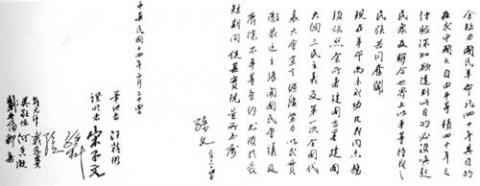 余致力國民革命凡四十年其目的
在求中國之自由平等積四十年之
經驗深知欲達到此目的必須喚起
民眾及聯合世界上以平等待我之
民族共同奮鬥
現在革命尚未成功凡我同志務
須依照余所著建國方略建國
大綱三民主義及第一次全國代
表大會宣言繼續努力以求貫
徹最近主張開國民會議及
廢除不平等條約尤須於最
短期間促其實現是所至囑
孫文
中華民國十四年二月二十四日
筆記者 汪精衛
證明者 宋子文
孫科
戴恩賽
吳敬恆 何香凝